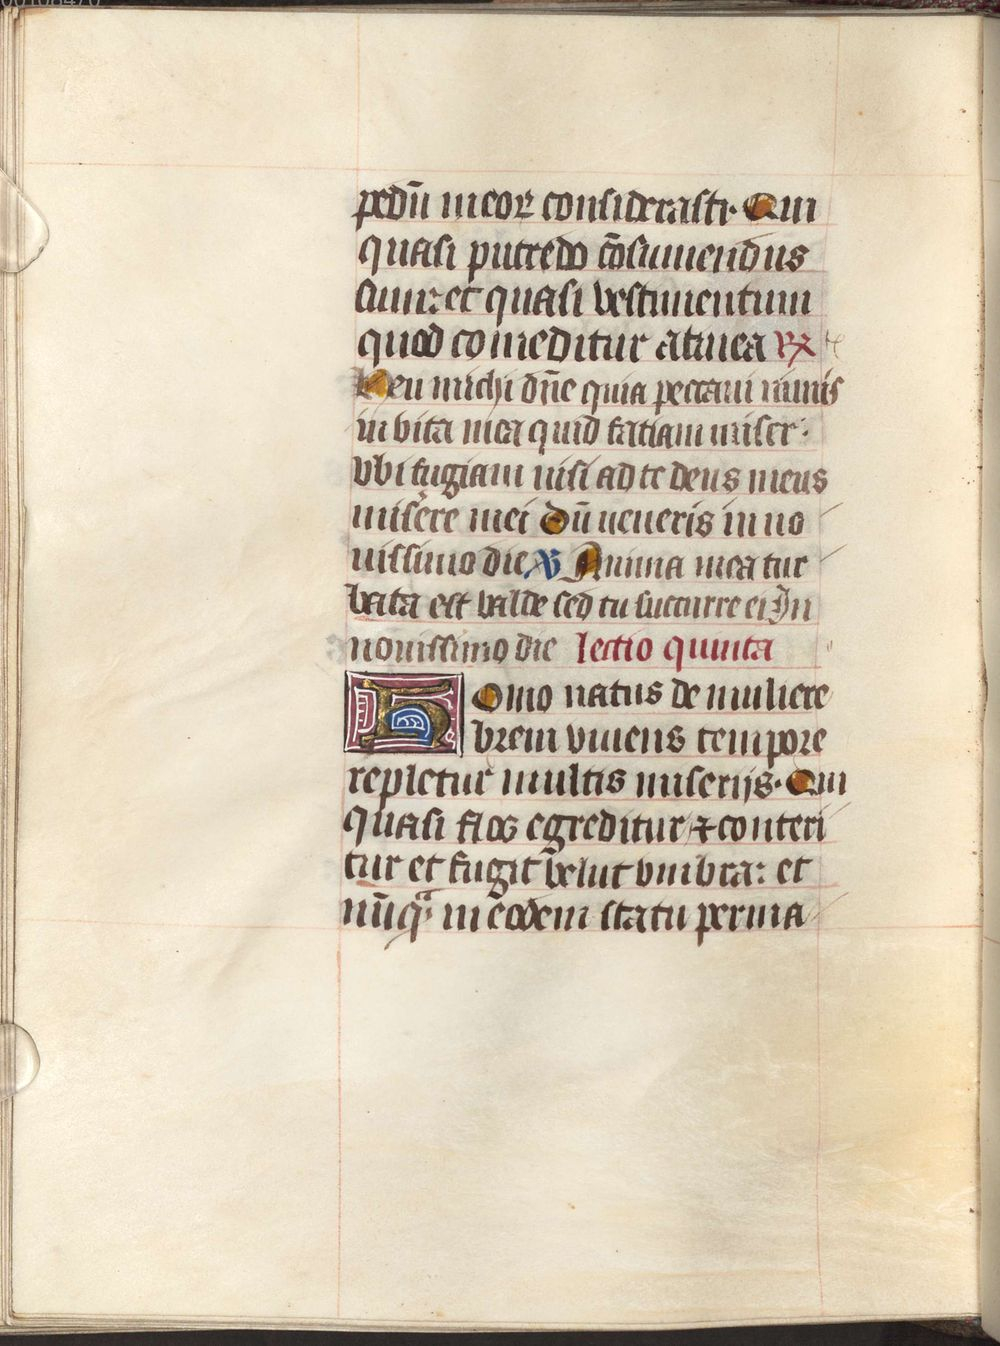 pedū meoꝝ considerasti· Qui
quasi putredo cōsumendus
sum: et quasi vestimentum
quod comeditur a tinea R̷
Heu michi dn̄e quia peccavi nimis
in vita mea quid fatiam miser·
vbi fugiam nisi ad te deus meus
misēre mei Dū ueneris in no
uissimo die V̷ Anima mea tur
bata est valde sed tu succurre ei In
nouissimo die lectio quinta
Homo natus de muliere
brem viuens tempore
repletur multis miserijs· Qui
quasi flos egreditur ⁊ conteri
tur et fugit velut vmbra: et
nūqᵃ in eodem statu perma